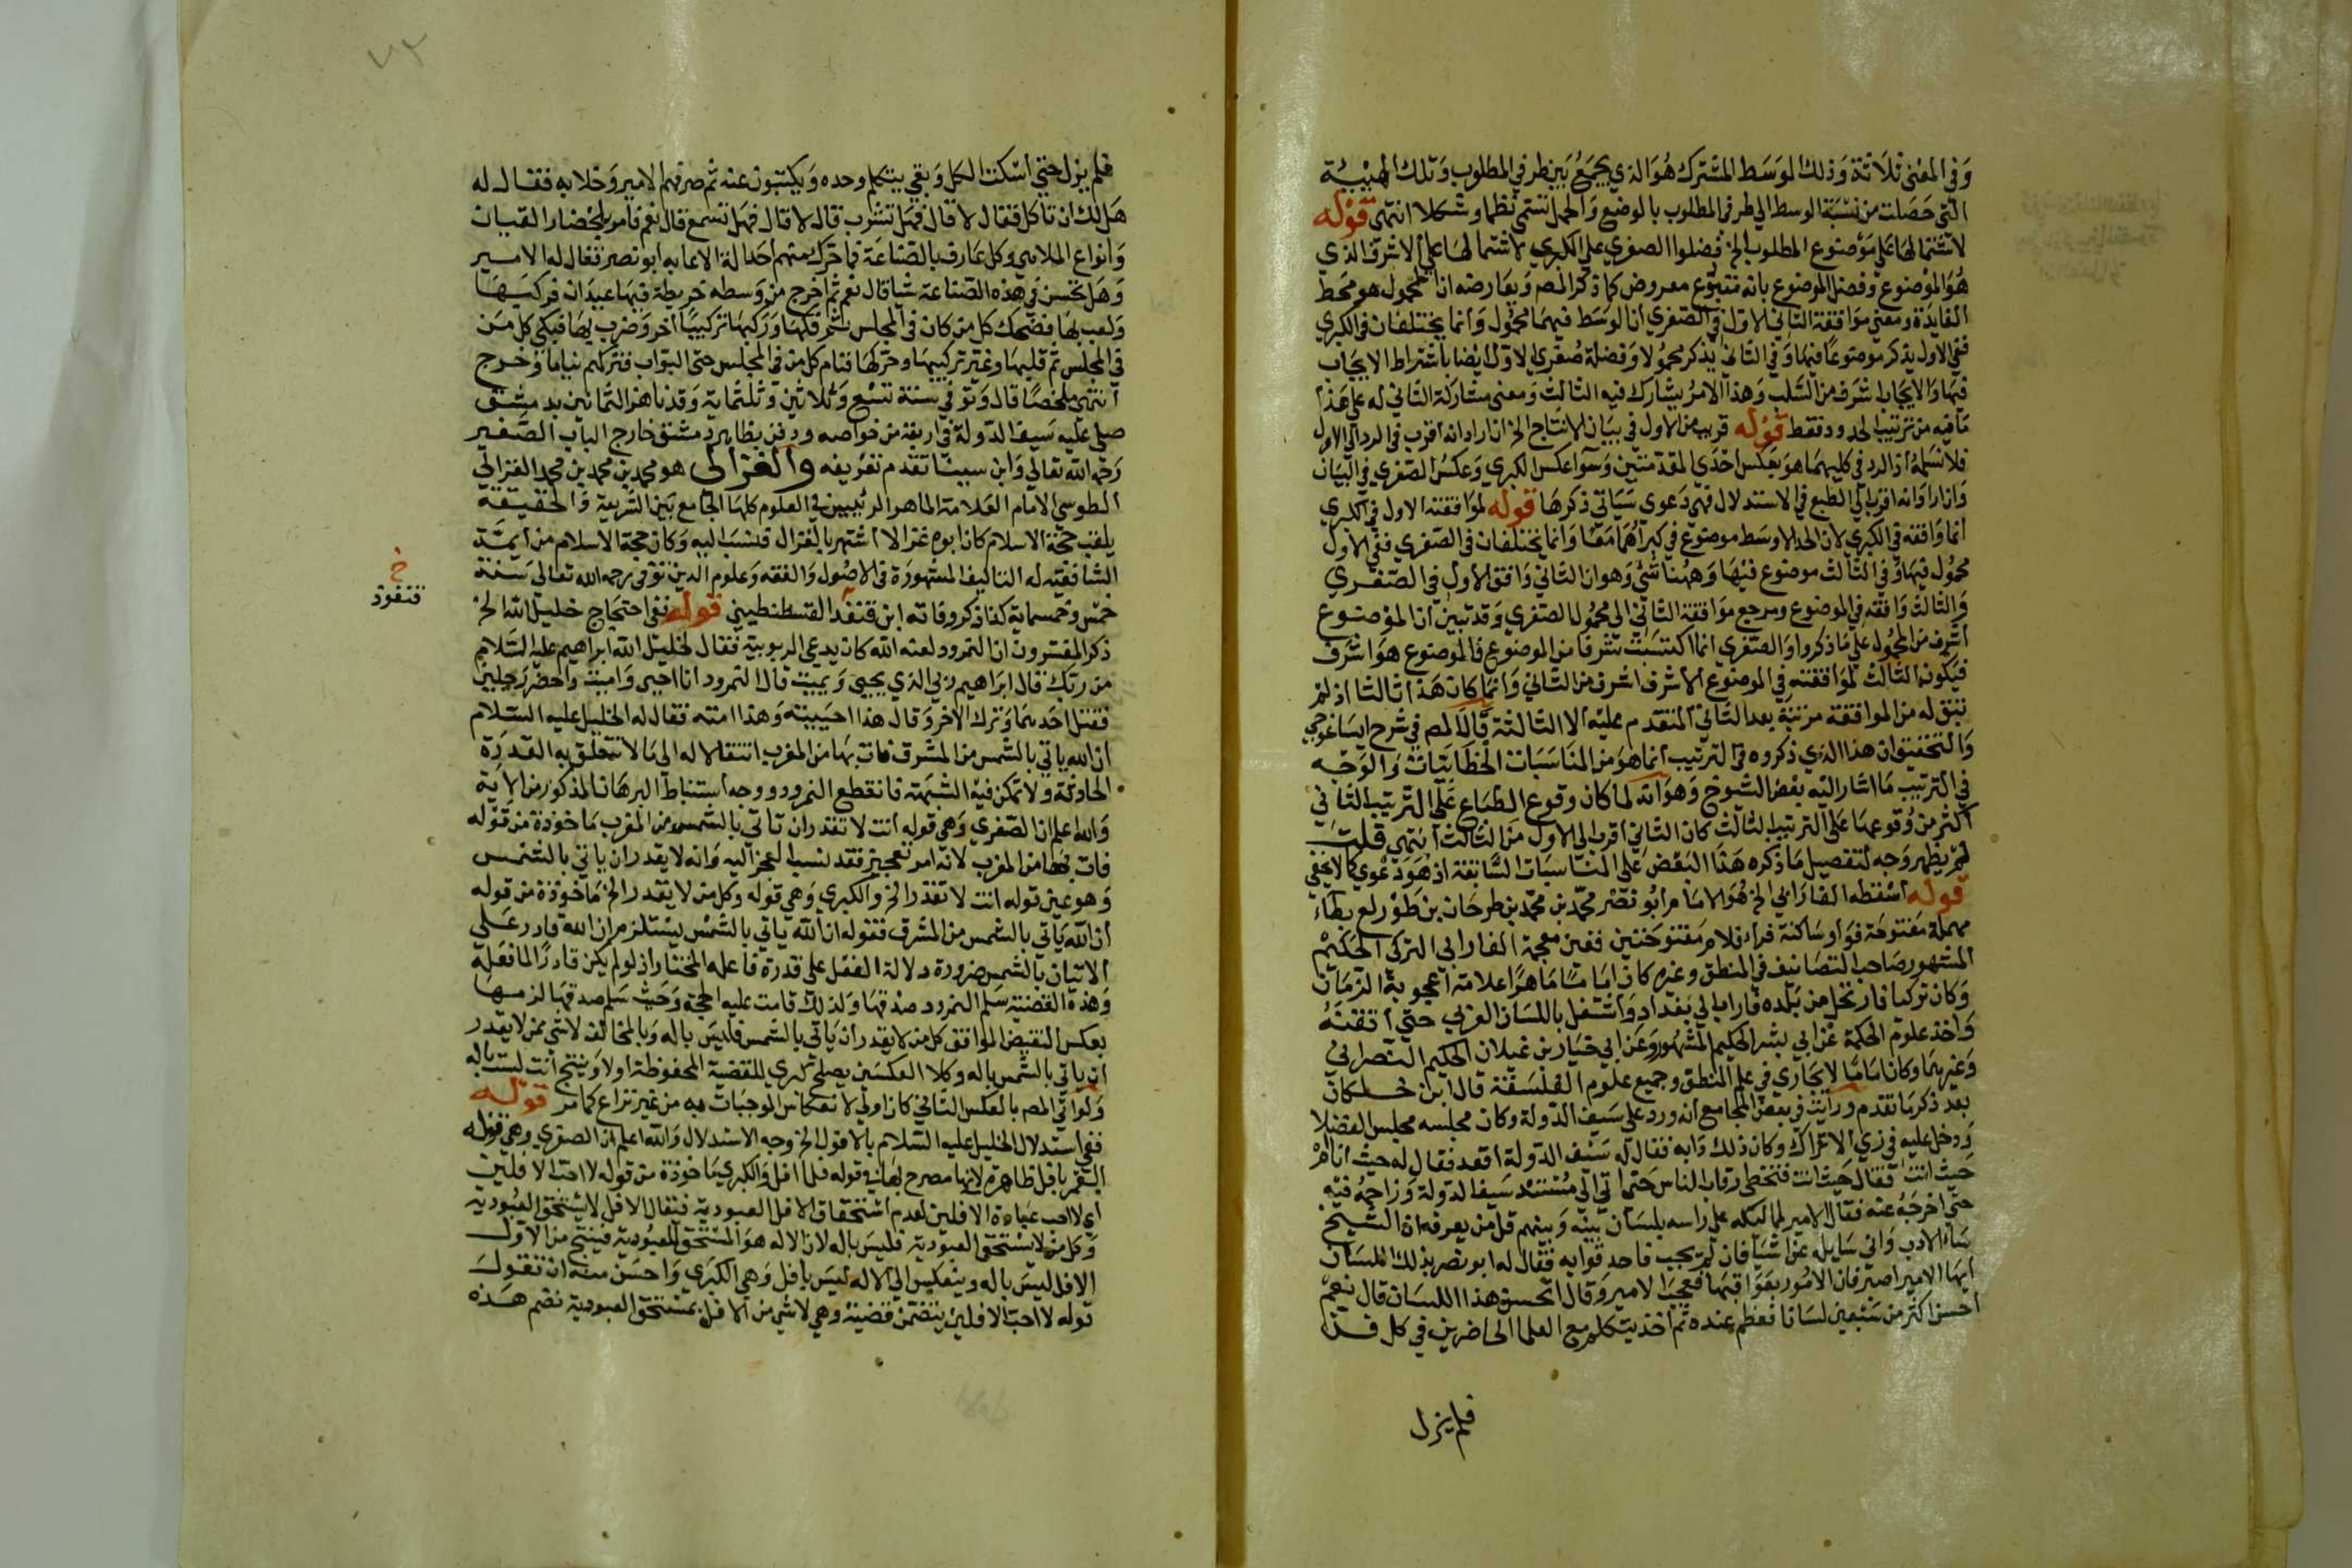 وفي المعنى ثلاثة وذلك الوسط المشترك هو الذي يجمع بين طرفي المطلوب وتلك الهيئة
التي حصلت من نسبة الوسط الي طرفي المطلوب بالوضع والحمل تسمى نظما وشكلا انتهى قوله
لاشتمالها على موضوع المطلوب الخ فضلوا الصغري على الكبري لاشتمالها على الاشرف الذي
هو الموضوع وفضل الموضوع بانه متبوع معروض كما ذكر المص ويعارضه ان المحمول هو محط
الفايدة ومعني موافقة الثاني للاول في الصغري ان الوسط فيهما محمول وانما يختلفان في الكبري
ففي الاول يذكر موضوعا فيها وفي الثاني يذكر محمولا وفضلة صغري الاول ايضا باشتراط الايجاب
فيها والايجاب اشرف من السلب وهذا الامر يشارك فيه الثالث ومعني مشاركة الثاني له على هذا
ما فيه من ترتيب الحدود فقط قوله قريب من الاول في بيان الانتاج الخ ان اراد انه اقرب في الرد الي الاول
فلا نسلمه اذ الرد في كليهما هو بعكس احدي المقدمتين وسوا عكس الكبري وعكس الصغري في البيان
وان اراد انه اقرب الي الطبع في الاستدلال فهي دعوى سياتي ذكرها قوله لموافقته الاول في الكبري
انما وافقه في الكبري لان الحد الاوسط موضوع في كبراهما معا وانما يختلفان في الصغري ففي الاول
محمول فيها وفي الثالث موضوع فيها وههنا شي وهو ان الثاني وافق الاول في الصغري
والثالث وافقه في الموضوع ومرجع موافقة الثاني الى محمول الصغري وقد تبين ان الموضوع
اشرف من المحمول على ما ذكروا والصغري انما اكتسبت شرفا من الموضوع فالموضوع هو اشرف
فيكون الثالث لموافقته في الموضوع الاشرف اشرف من الثاني وانما كان هذا ثالثا اذ لم
تبق له من الموافقة مرتبة بعد الثاني المتقدم عليه الا الثالثة قال المص في شرح ايساغوجي
والتحقيق ان هذا الذي ذكروه في الترتيب انما هو من المناسبات الخطابيات والوجه
في الترتيب ما اشار اليه بعض الشيوخ وهو انه لما كان وقوع الطباع على الترتيب الثاني
اكثر من وقوعها على الترتيب الثالث كان الثاني اقرب الى الاول من الثالث انتهى قلت
لم يظهر وجه لتفصيل ما ذكره هذا البعض على المناسبات السابقة اذ هو دعوي كما لا يخفي
قوله اسقطه الفارابي الخ هو الامام ابو نصر محمد بن محمد بن طرخان بن طورلغ بطاء
مهملة مفتوحة فواو ساكنة فراء فلام مفتوحتين فغين معجمة الفارابي التركي الحكيم
المشهور صاحب التصانيف في المنطق وغيره كان اماما ماهرا علامة اعجوبة الزمان
وكان تركيا فارتحل من بلده فاراب الي بغداد واشتغل باللسان العربي حتي اتقنه
واخذ علوم الحكمة عن ابي بشر الحكيم المشهور وعن ابي خيار بن غيلان الحكيم النصراني
وغيرهما وكان اماما لا يجاري في علم المنطق وجميع علوم الفلسفة قال ابن خلكان
بعد ذكر ما تقدم ورايت في بعض المجامع انه ورد على سيف الدولة وكان مجلسه مجلس الفضلا
ودخل عليه في زي الاتراك وكان ذلك دابه فقال له سيف الدولة اقعد فقال له حيث انا ام
حيث انت فقال حيث انت فتخطى رقاب الناس حتى اتى الي مسند سيف الدولة وزاحمه فيه
حتى اخرجه عنه فقال الامير لمماليكه على راسه بلسان بينه وبينهم قل من يعرفه ان الشيخ
ساء الادب واني سايله عن اشيا فان لم يجب فاحدقوا به فقال له ابو نصر بذلك اللسان
ايها الامير اصبر فان الامور بعواقبها فعجب الامير وقال اتحسن هذا اللسان قال نعم
احسن اكثر من سبعين لسانا فعظم عنده ثم اخذ يتكلم مع العلما الحاضرين في كل فن
فلم يزل
٧٢
فلم يزل حتي اسكت الكل وبقي يتكلم وحده ويكتبون عنه ثم صرفهم الامير وخلا به فقال له
هل لك ان تاكل فقال لا قال فهل تشرب قال لا قال فهل تسمع قال نعم فامر باحضار القيان
وانواع الملاهي وكل عارف بالصناعة فما حرك منهم احد الة الا عابه ابو نصر فقال له الامير
وهل تحسن في هذه الصناعة شيا قال نعم ثم اخرج من وسطه خريطة فيها عيدان فركبها
ولعب بها فضحك كل من كان في المجلس ثم فكها وركبها تركيبا اخر وضرب بها فبكي كل من
في المجلس ثم قلبها وغير تركيبها وحركها فنام كل من في المجلس حتى البواب فتركهم نياما وخرج
انتهى ملخصا قال وتوفي سنة تسع وثلاثين وثلثماية وقد ناهز الثمانين بدمشق
صلى عليه سيف الدولة في اربعة من خواصه ودفن بظاهر دمشق خارج الباب الصغير
رحمه الله تعالي وابن سينا تقدم تعريفه والغزالي هو محمد بن محمد بن محمد الغزالي
الطوسي الامام العلامة الماهر الرئيس في العلوم كلها الجامع بين الشريعة والحقيقة
يلقب حجة الاسلام كان ابوه غزالا اشتهر بالغزال فنسب اليه وكان حجة الاسلام من ايمة
الشافعية له التاليف المشهورة في الاصول والفقه وعلوم الدين توفي رحمه الله تعالى سنة
خمس وخمسماية كذا ذكر وفاته ابن قنفد القسطنطيني قوله نفي احتجاج خليل الله الخ
خ
قنفوذ
ذكر المفسرون ان النمرود لعنه الله كان يدعي الربوبية فقال لخليل الله ابراهيم عليه السلام
من ربك قال ابراهيم ربي الذي يحيي ويميت قال النمرود انا احيي واميت واحضر رجلين
فقتل احدهما وترك الاخر وقال هذا احييته وهذا امته فقال له الخليل عليه السلام
ان الله ياتي بالشمس من المشرق فات بها من المغرب انتقالا له الى ما لا تتعلق به القدرة
الحادثة ولا تمكن فيه الشبهة فانقطع النمرود ووجه استنباط البرهان المذكور من الاية
والله اعلم ان الصغري وهي قوله انت لا تقدر ان تاتي بالشمس من المغرب ماخوذة من قوله
فات بها من المغرب لانه امر تعجيز فقد نسب العجز اليه وانه لا يقدر ان ياتي بالشمس
وهو عين قوله انت لا تقدر الخ والكبري وهي قوله وكل من لا يقدر الخ ماخوذة من قوله
ان الله ياتي بالشمس من المشرق فقوله ان الله ياتي بالشمس يستلزم ان الله قادر على
الاتيان بالشمس ضرورة دلالة الفعل على قدرة فاعله المختار اذ لو لم يكن قادرا لما فعله
وهذه القضية سلم النمرود صدقها ولذلك قامت عليه الحجة وحيث سلم صدقها لزمها
بعكس النقيض الموافق كل من لا يقدر ان ياتي بالشمس فليس باله وبالمخالف لا شي ممن لا يقدر
ان ياتي بالشمس باله وكلا العكسين يصلح كبري للقضية المحفوظة اولا وينتج انت لست باله
ولو اتي المص بالعكس الثاني كان اولي لانعكاس الموجبات فيه من غير نزاع كما مر قوله
ففي استدلال الخليل عليه السلام بالافول الخ وجه الاستدلال والله اعلم ان الصغري وهي قوله
القمر افل ظاهرة لانها مصرح بها في قوله فلما افل والكبري ماخوذة من قوله لا احب الافلين
اي لا احب عبادة الافلين لعدم استحقاق الافل العبودية فيقال الافل لا يستحق العبودية
وكل من لا يستحق العبودية فليس باله لان الاله هو المستحق للعبودية فينتج من الاول
الافل ليس باله وينعكس الي الاله ليس بافل وهي الكبري واحسن منه ان تقول
قوله لا احب الافلين يتضمن قضية وهي لا شي من الافل بمستحق العبودية نضم هذه